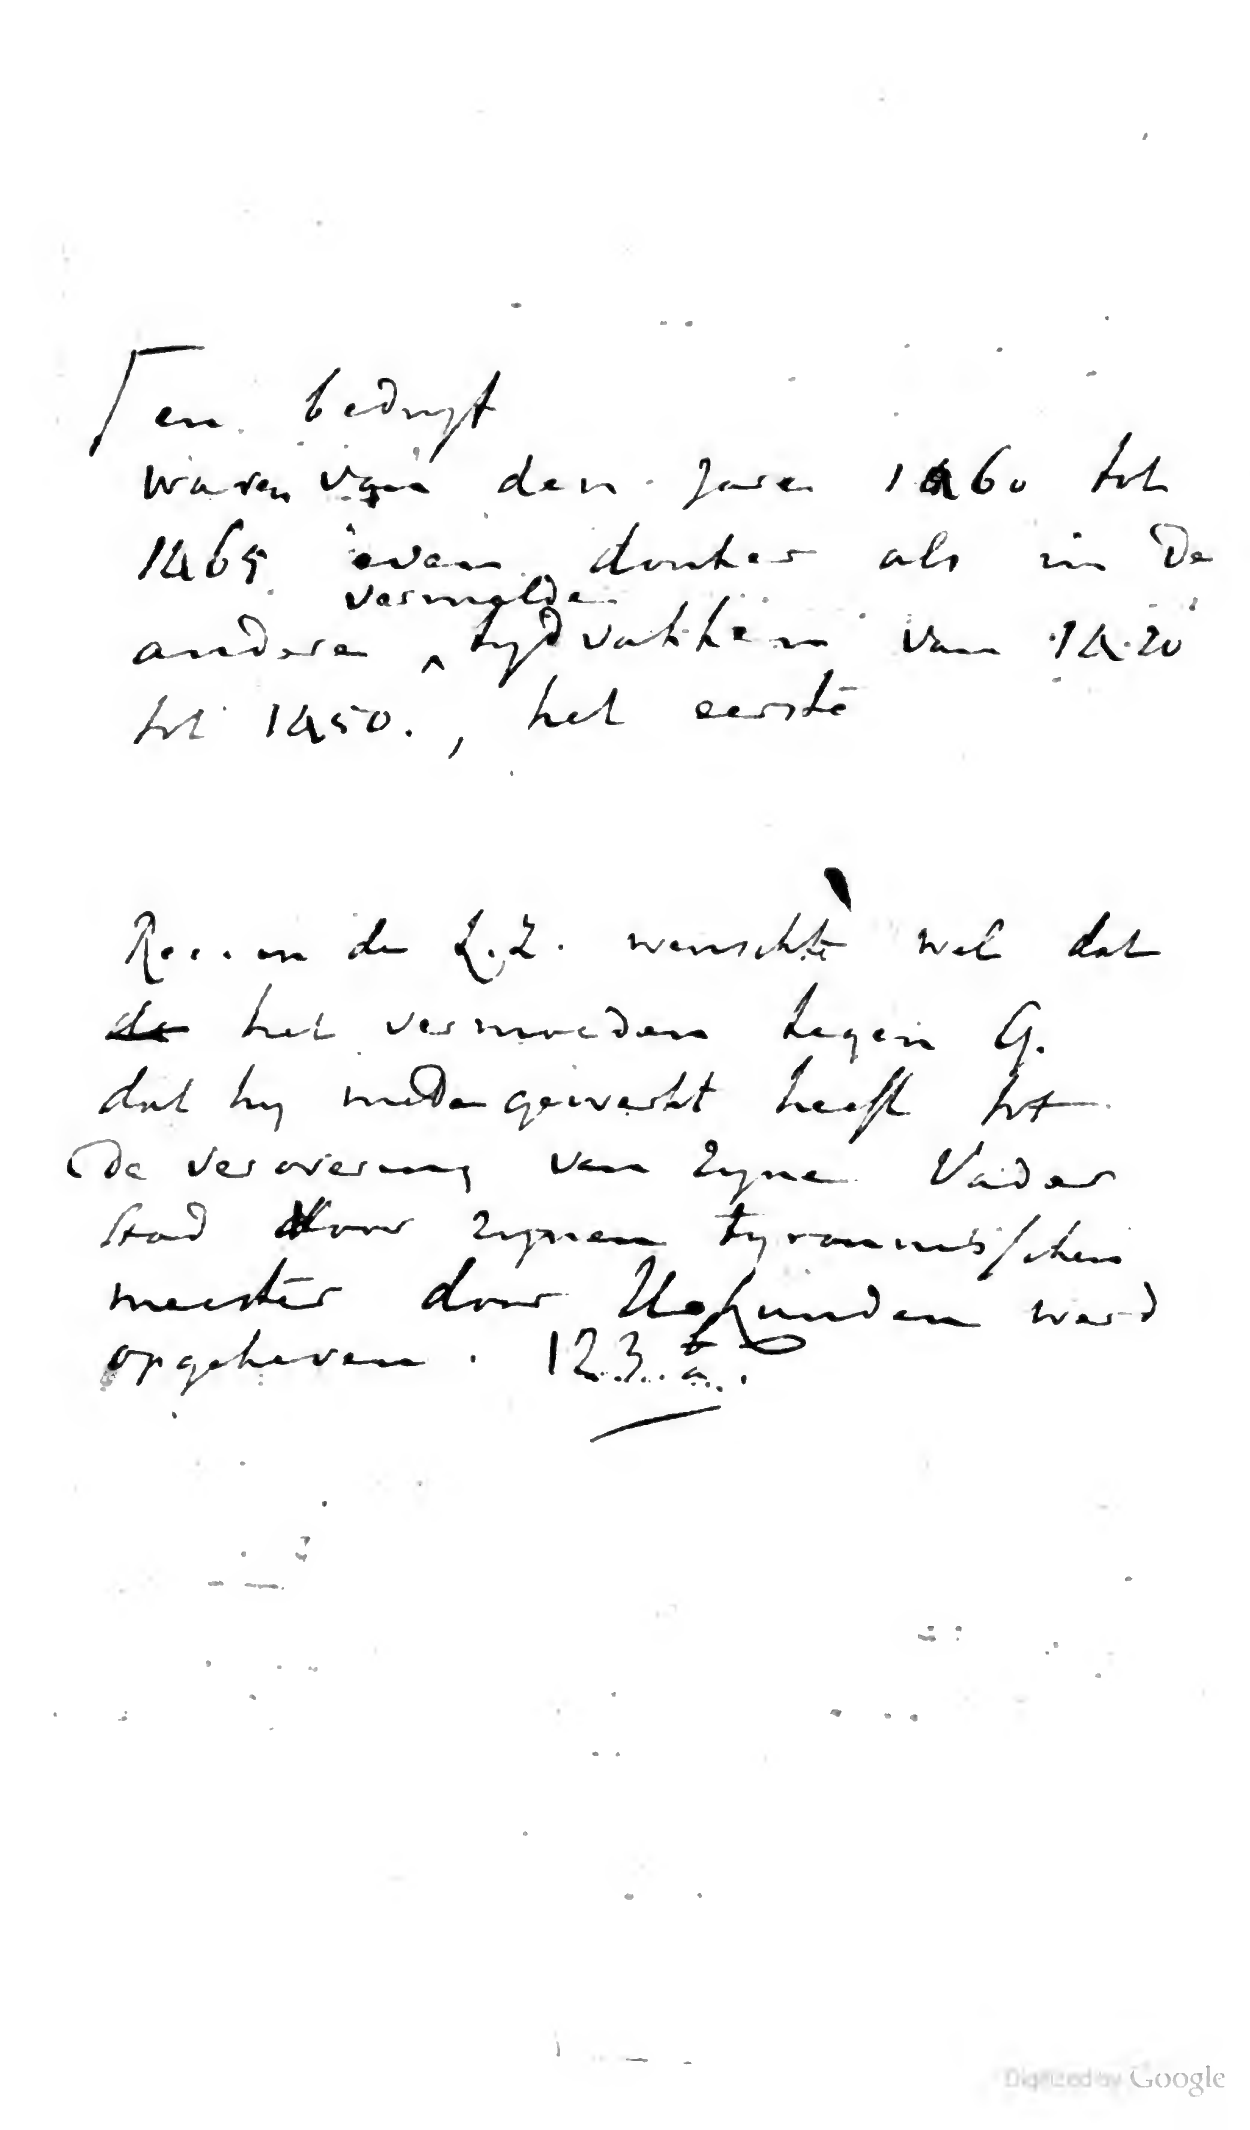 en bedryf
waren van den Jare 1460 tot
1465 even donker als in de
vermelde
andere ^ tydvakken van 1420
tot 1450., het eerste
Rec. in de L.Z. wenschte wel dat
de het vermoeden tegen G.
dat hy medegewerkt heeft tot
de verovering van zyne Vader
stad door zynen tyrannisschen
meester door Uokunden werd
opgeheven. 123. b
Digitized by Google